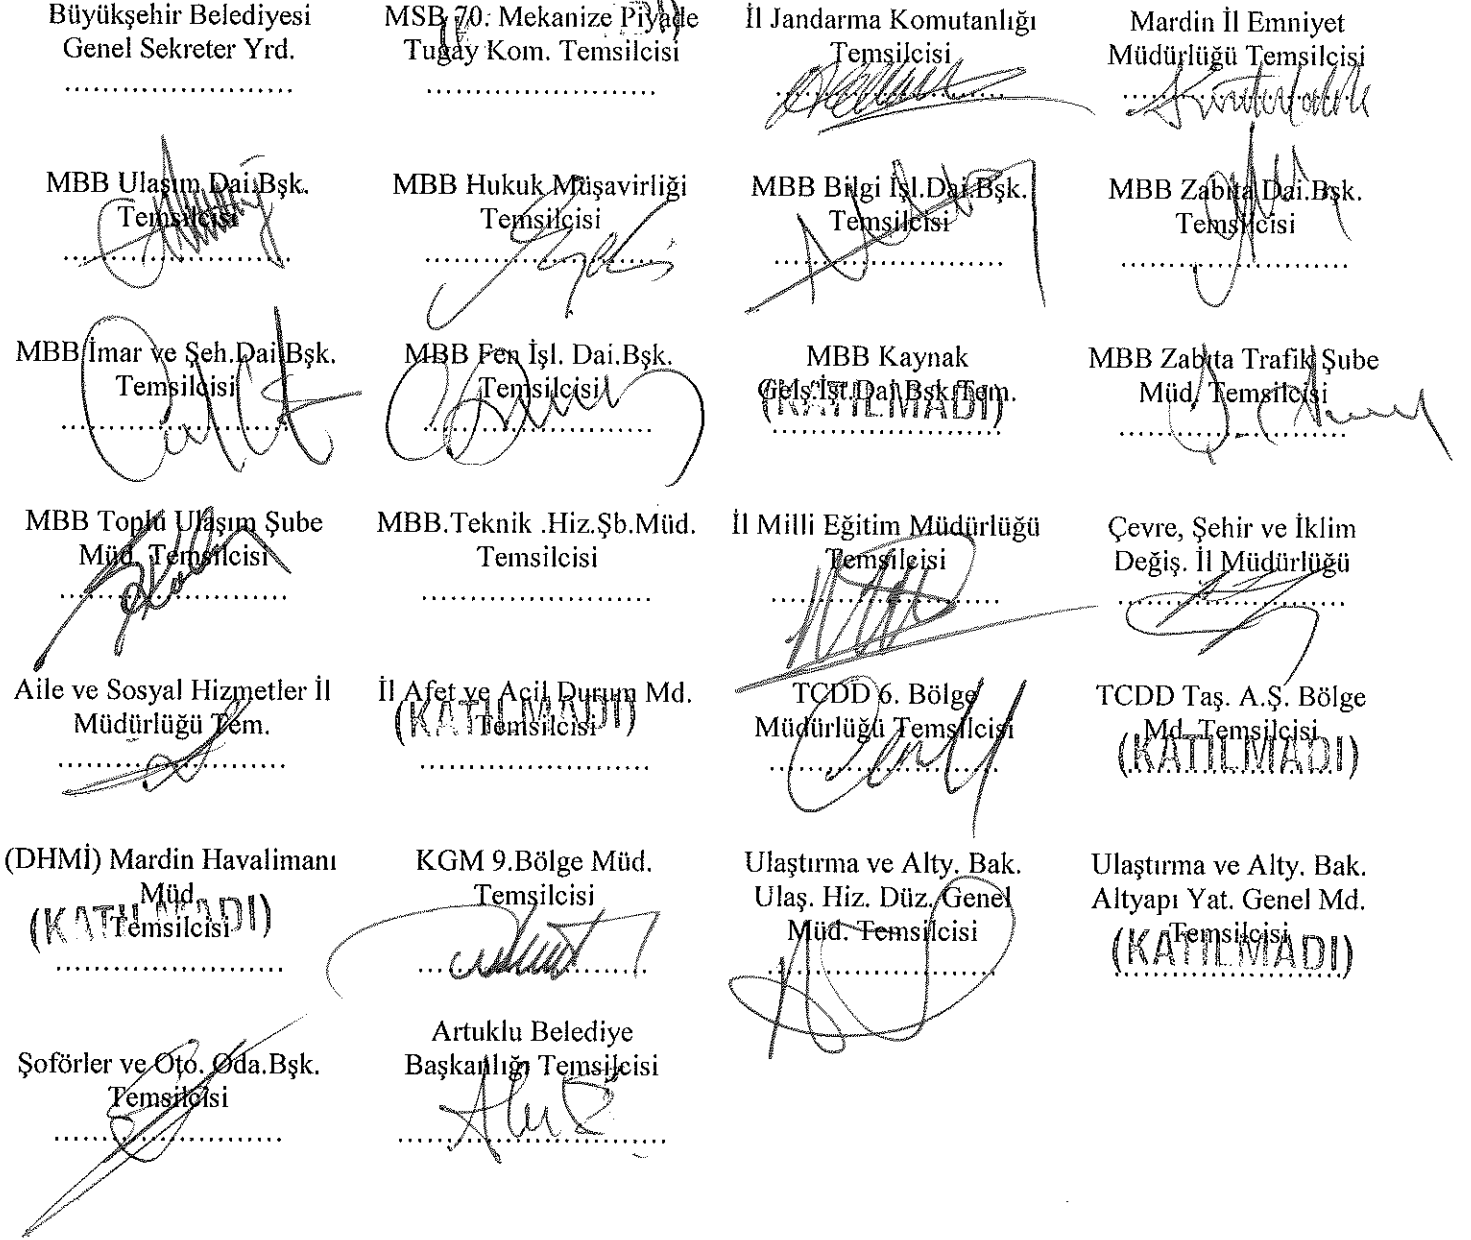 Büyükşehir Belediyesi
Genel Sekreter Yrd.
........................
MSB 70. Mekanize Piyade
Tugay Kom. Temsilcisi
........................
İl Jandarma Komutanlığı
Temsilcisi
........................
Mardin İl Emniyet
Müdürlüğü Temsilcisi
........................
MBB Ulaşım Dai.Bşk.
Temsilcisi
........................
MBB Hukuk Müşavirliği
Temsilcisi
........................
MBB Bilgi İşl.Dai.Bşk.
Temsilcisi
........................
MBB Zabıta Dai.Bşk.
Temsilcisi
........................
MBB İmar ve Şeh.Dai.Bşk.
Temsilcisi
........................
MBB Fen İşl. Dai.Bşk.
Temsilcisi
........................
MBB Kaynak
Gelş.İşt.Dai.Bşk.Tem.
(KATILMADI)
........................
MBB Zabıta Trafik Şube
Müd. Temsilcisi
........................
MBB Toplu Ulaşım Şube
Müd. Temsilcisi
........................
MBB.Teknik .Hiz.Şb.Müd.
Temsilcisi
........................
İl Milli Eğitim Müdürlüğü
Temsilcisi
........................
Çevre, Şehir ve İklim
Değiş. İl Müdürlüğü
........................
Aile ve Sosyal Hizmetler İl
Müdürlüğü Tem.
........................
İl Afet ve Acil Durum Md.
Temsilcisi
(KATILMADI)
........................
TCDD 6. Bölge
Müdürlüğü Temsilcisi
........................
TCDD Taş. A.Ş. Bölge
Md. Temsilcisi
(KATILMADI)
........................
(DHMİ) Mardin Havalimanı
Müd.
Temsilcisi
(KATILMADI)
........................
KGM 9.Bölge Müd.
Temsilcisi
........................
Ulaştırma ve Alty. Bak.
Ulaş. Hiz. Düz. Genel
Müd. Temsilcisi
........................
Ulaştırma ve Alty. Bak.
Altyapı Yat. Genel Md.
Temsilcisi
(KATILMADI)
........................
Şoförler ve Oto. Oda.Bşk.
Temsilcisi
........................
Artuklu Belediye
Başkanlığı Temsilcisi
............................